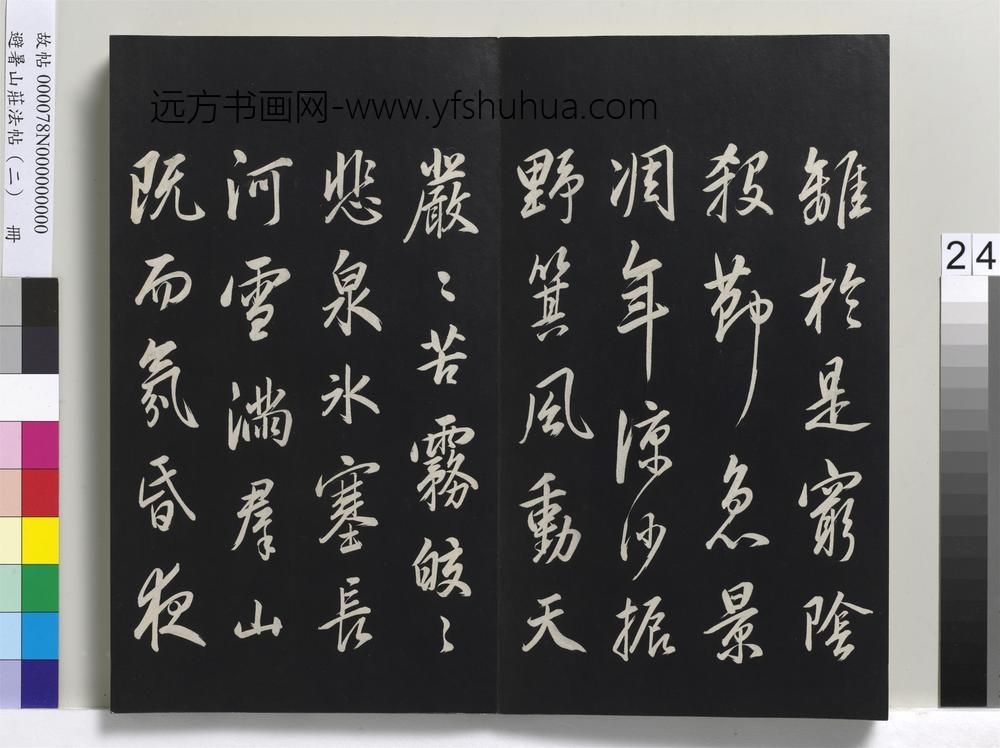 雜於是窮陰
殺節急景
凋年涼沙振
野箕風動天
嚴〻苦霧皎〻
悲泉氷塞長
河雪滿群山
既而氛昏夜
远方书画网-www.yfshuhua.com
故帖 000078N000000000
避暑山莊法帖(二) 冊
24